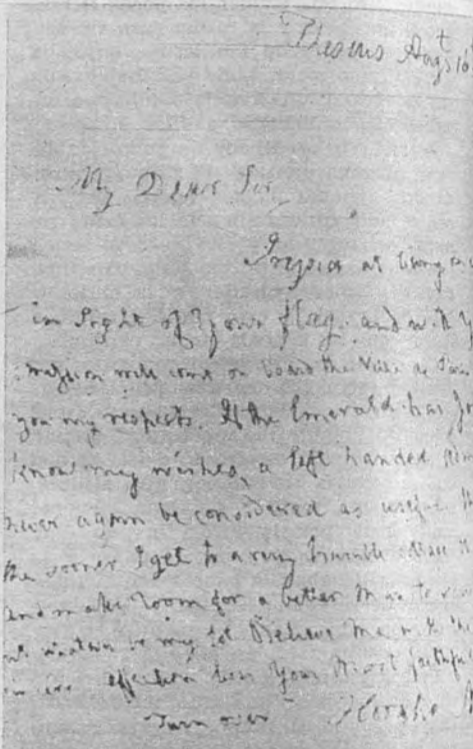 Theseus Augt 16
My Dear Sir
I rejoice at being
in sight of your flag. and with
mission will come on board the Ville de Paris
you my respects. If the Emerald has
know my wishes, a left handed
never again be considered as useful
the sooner I get to a very humble cottage
and make room for a better Man to
whatever be my lot Believe Me with
affection Your Most faithful
turn over Horatio